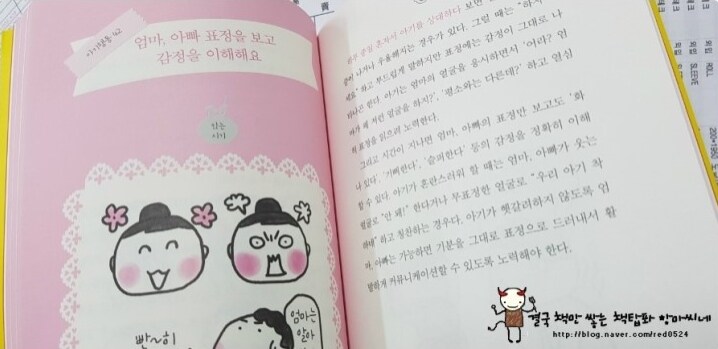 아이행동 42
엄마, 아빠 표정을 보고
감정을 이해해요
빤~히
엄마는
알아
하루 종일 혼자서 아기를 상대하다 보면
증이 나거나 우울해지는 경우가 있다. 그럴 때는 "하지
네요" 하고 부드럽게 말하지만 표정에는 감정이 그대로 나
타나곤 한다. 아기는 엄마의 얼굴을 응시하면서 '어라? 엄
마가 왜 저런 얼굴을 하지?', '평소와는 다른데?' 하고 열심
히 표정을 읽으려 노력한다.
그리고 시간이 지나면 엄마, 아빠의 표정만 보고도 '화
나 있다', '기뻐한다', '슬퍼한다' 등의 감정을 정확히 이해
할 수 있다. 아기가 혼란스러워 할 때는 엄마, 아빠가 웃는
얼굴로 "안 돼!" 한다거나 무표정한 얼굴로 "우리 아기 착
하네" 하고 칭찬하는 경우다. 아기가 헷갈려하지 않도록 엄
마, 아빠는 가능하면 기분을 그대로 표정으로 드러내서 활
발하게 커뮤니케이션할 수 있도록 노력해야 한다.
ROLL
SLEEVE
결국 책만 쌓는 책탑퐈 항마씨네
http://blog.naver.com/red0524